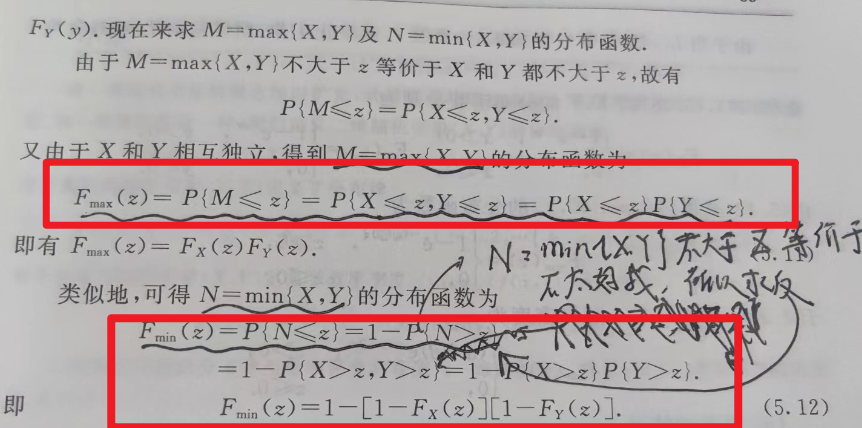 F_Y(y).现在来求 M=max{X,Y}及 N=min{X,Y}的分布函数.
由于 M=max{X,Y}不大于 z 等价于 X 和 Y 都不大于 z,故有
P{M≤z}=P{X≤z,Y≤z}.
又由于 X 和 Y 相互独立,得到 M=max{X,Y}的分布函数为
F_max(z)=P{M≤z}=P{X≤z,Y≤z}=P{X≤z}P{Y≤z}.
即有 F_max(z)=F_X(z)F_Y(z). (5.11)
N=min{X,Y}不大于 Z 等价于
不太好找,所以求反
类似地,可得 N=min{X,Y}的分布函数为
F_min(z)=P{N≤z}=1-P{N>z}
=1-P{X>z,Y>z}=1-P{X>z}P{Y>z}.
即 F_min(z)=1-[1-F_X(z)][1-F_Y(z)]. (5.12)